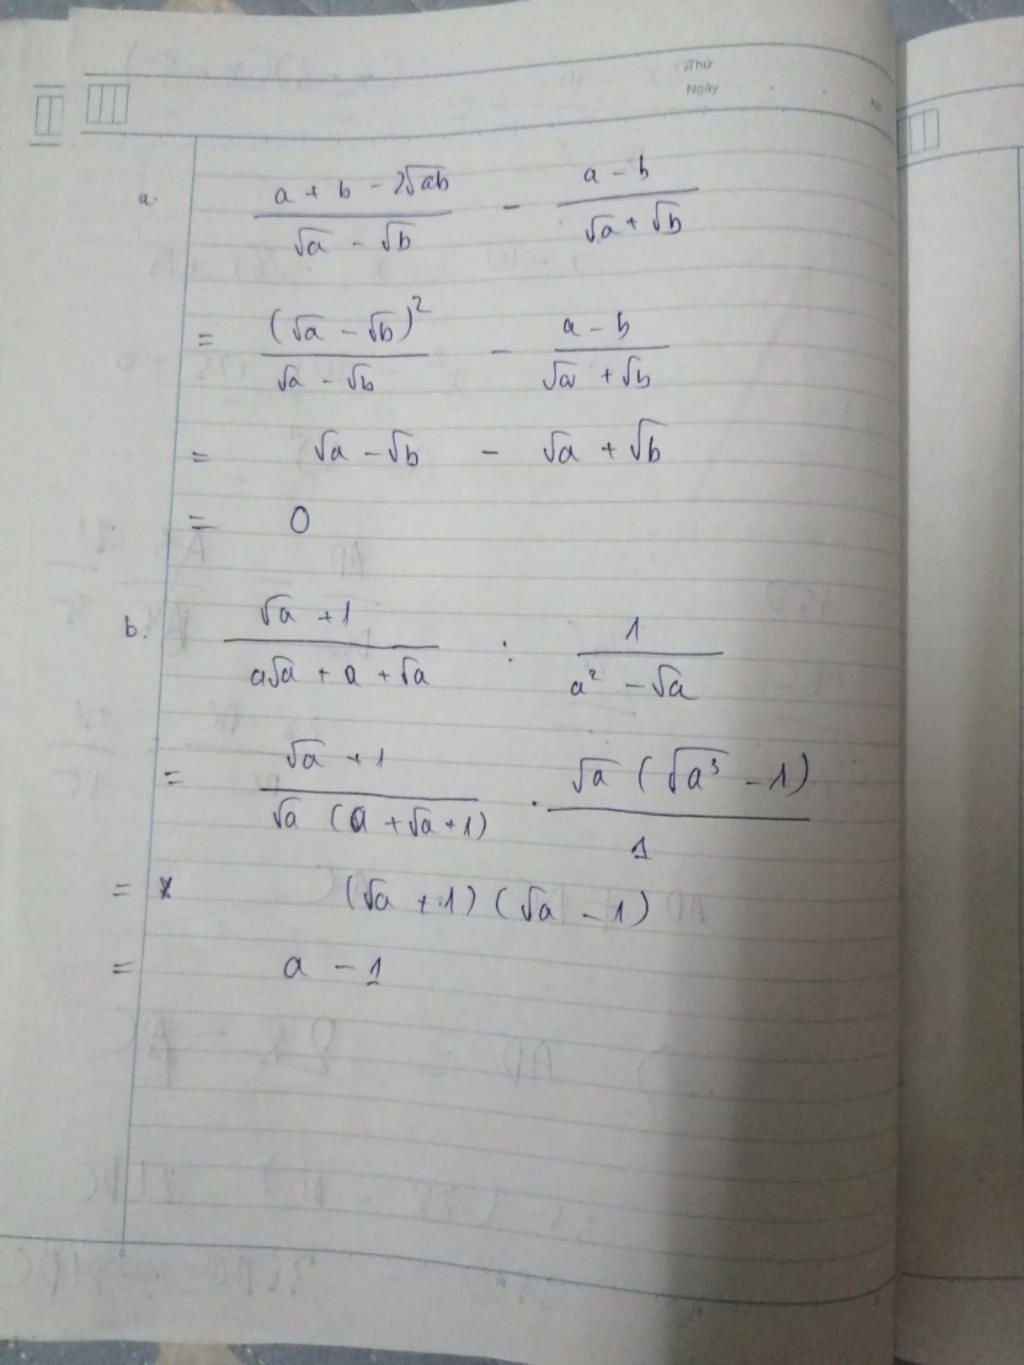 Thứ
Ngày
a. (a + b - 2√ab)/(√a - √b) - (a - b)/(√a + √b)
= (√a - √b)²/(√a - √b) - (a - b)/(√a + √b)
= √a - √b - √a + √b
= 0
b. (√a + 1)/(a√a + a + √a) : 1/(a² - √a)
= (√a + 1)/(√a (a + √a + 1)) · √a (√a³ - 1)/1
= (√a + 1) (√a - 1)
= a - 1